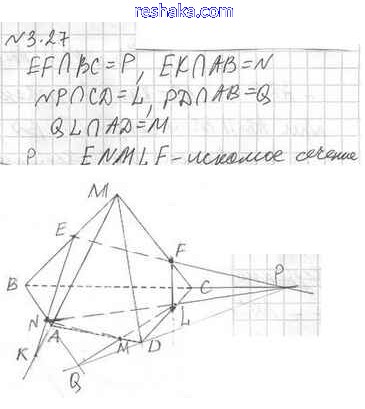 reshaka.com
N3.27
EF∩BC=P, EK∩AB=N
NP∩CD=L, PD∩AB=Q
QL∩AD=M
P ENMLF-искомое сечение
M
E
F
B
C
P
N
A
L
K
M
D
Q